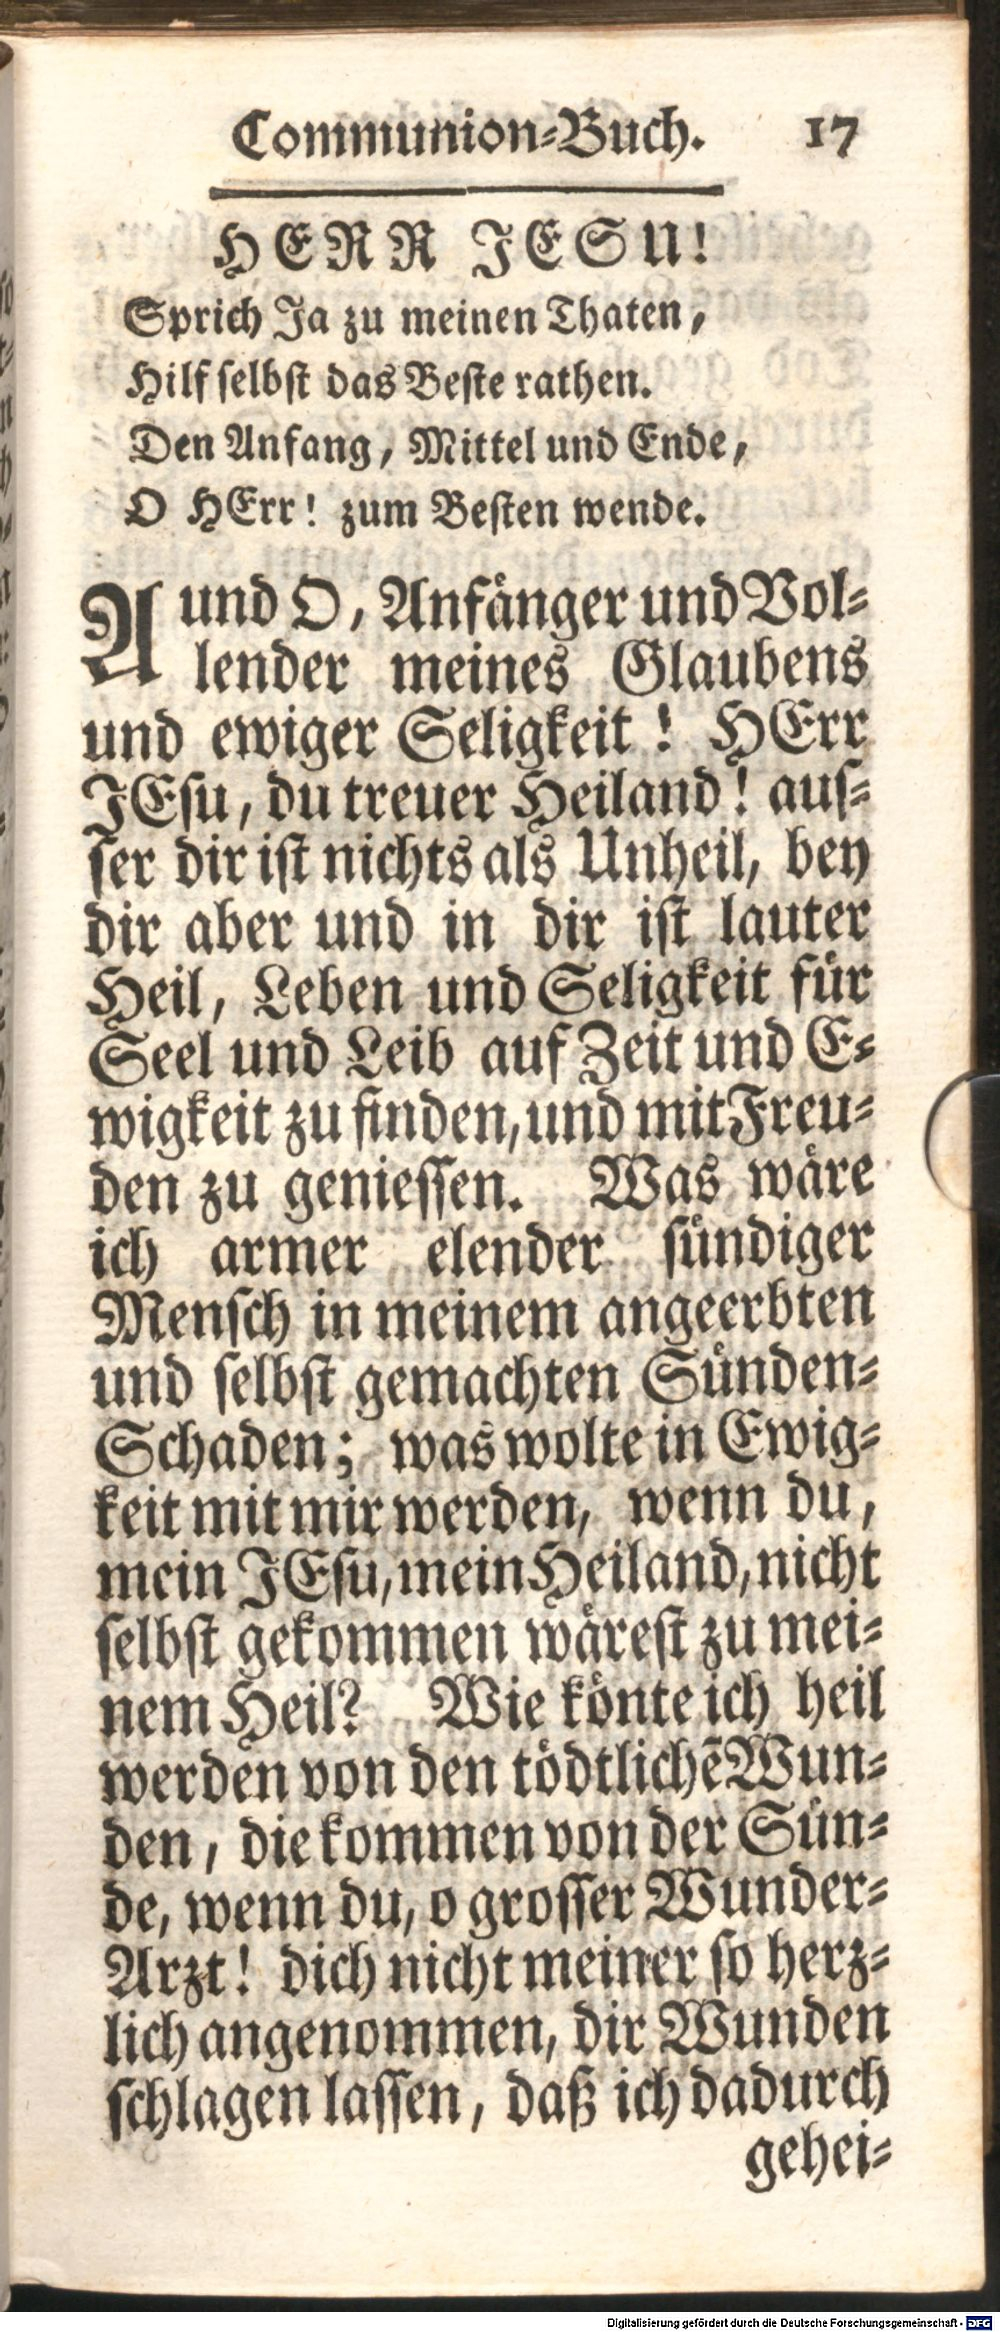 Communion-Buch. 17
HERR JESU!
Sprich Ja zu meinen Thaten,
Hilf selbst das Beste rathen.
Den Anfang, Mittel und Ende,
O HErr! zum Besten wende.
A und O, Anfänger und Vol-
lender meines Glaubens
und ewiger Seligkeit! HErr
JEsu, du treuer Heiland! aus-
ser dir ist nichts als Unheil, bey
dir aber und in dir ist lauter
Heil, Leben und Seligkeit für
Seel und Leib auf Zeit und E-
wigkeit zu finden, und mit Freu-
den zu geniessen. Was wäre
ich armer elender sündiger
Mensch in meinem angeerbten
und selbst gemachten Sünden-
Schaden; was wolte in Ewig-
keit mit mir werden, wenn du,
mein JEsu, mein Heiland, nicht
selbst gekommen wärest zu mei-
nem Heil? Wie könte ich heil
werden von den tödtlichē Wun-
den, die kommen von der Sün-
de, wenn du, o grosser Wunder-
Arzt! dich nicht meiner so herz-
lich angenommen, dir Wunden
schlagen lassen, daß ich dadurch
gehei-
Digitalisierung gefördert durch die Deutsche Forschungsgemeinschaft - DFG